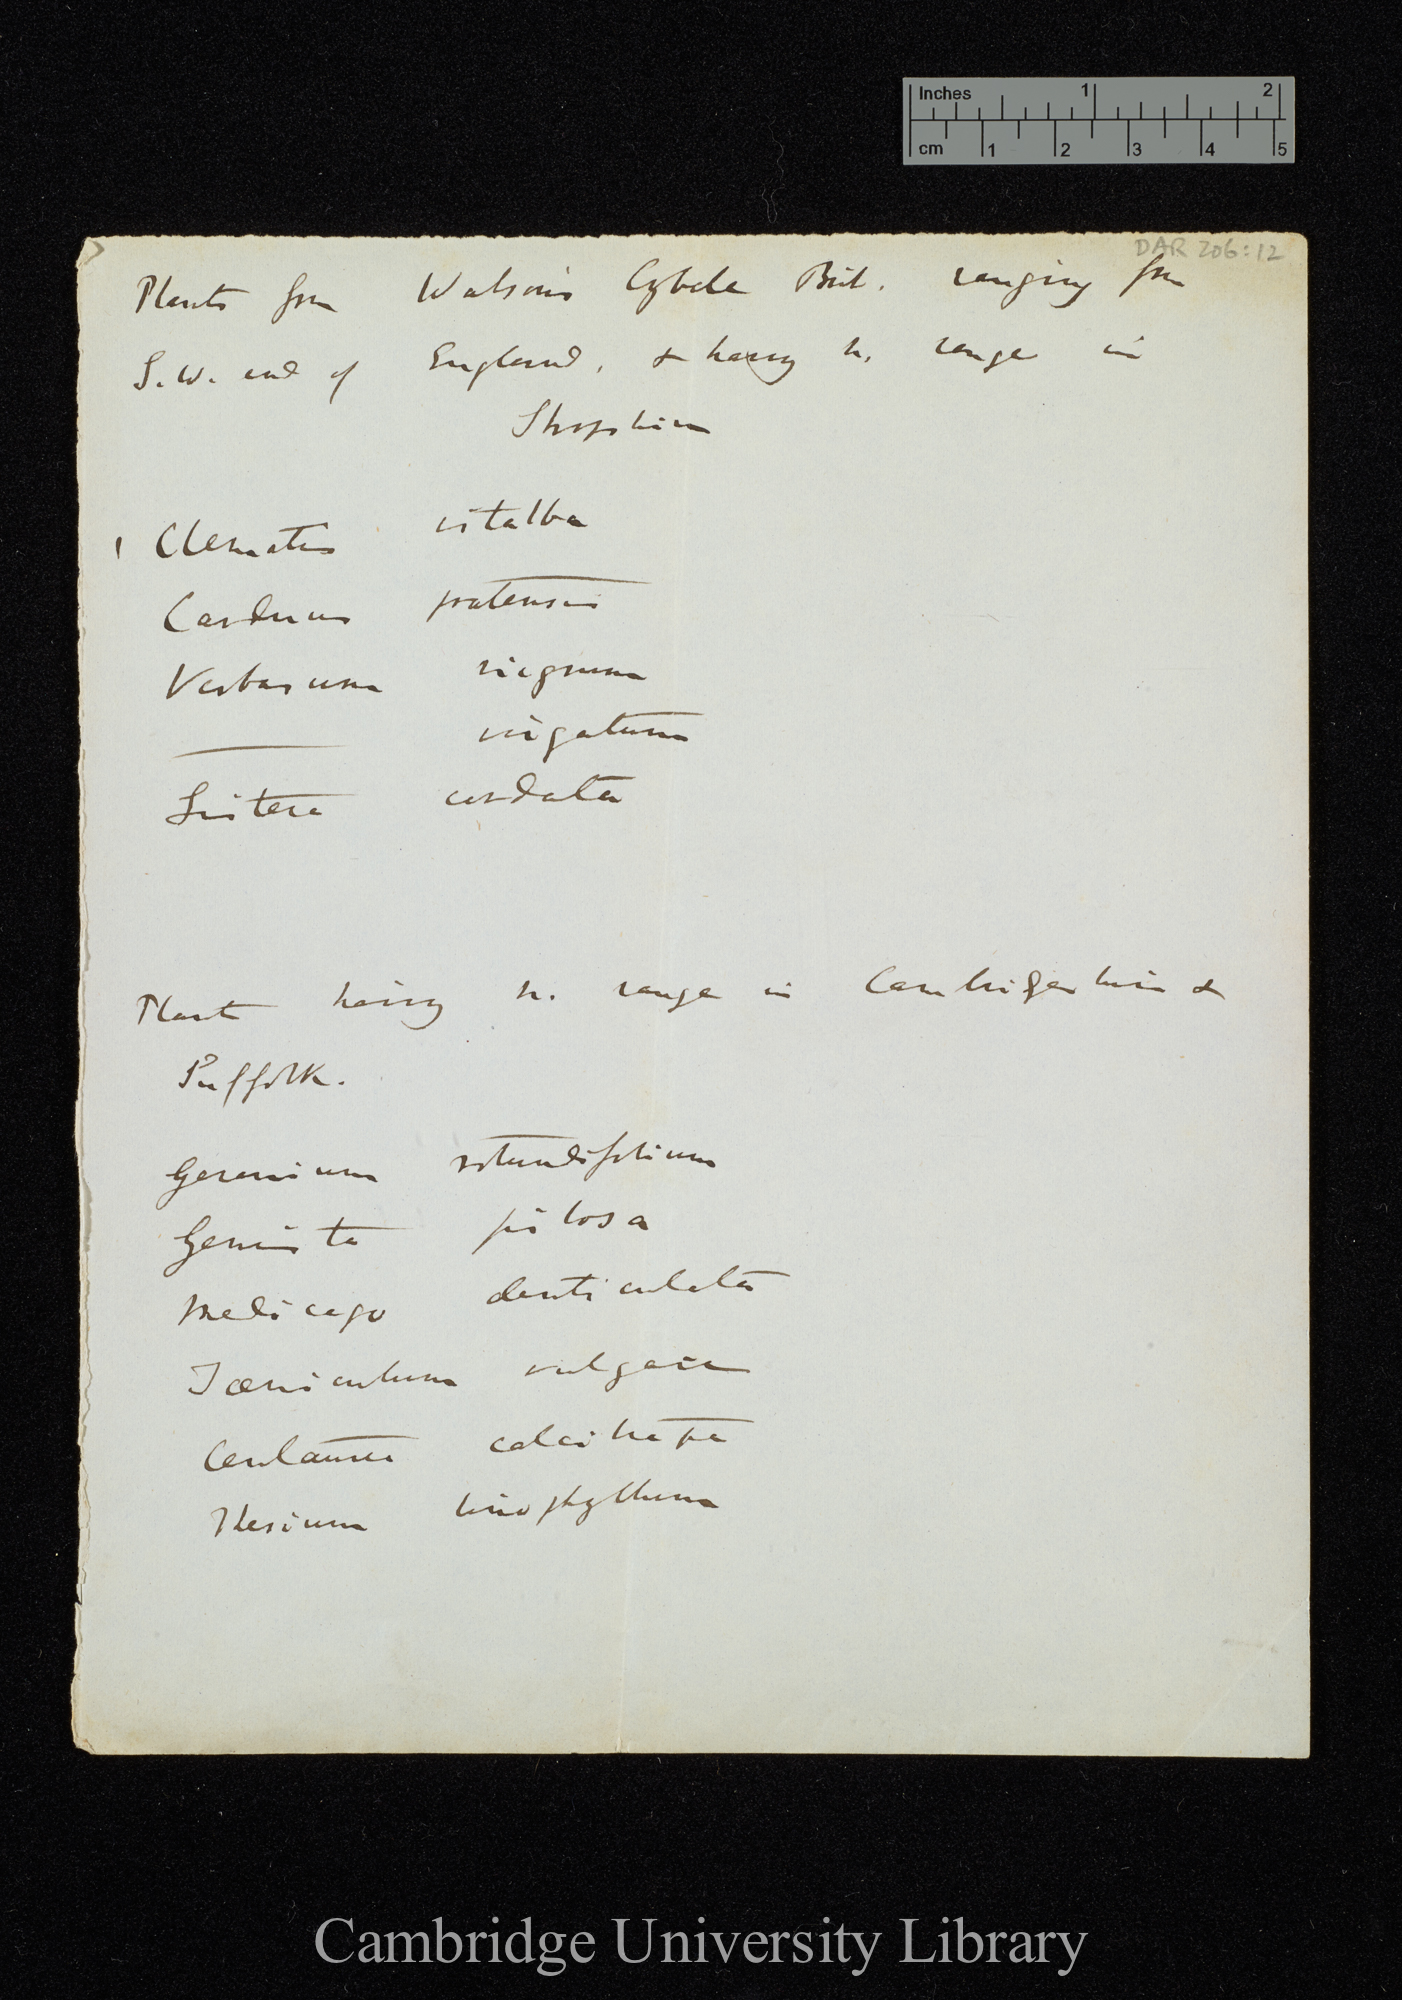 Inches 1 2
cm 1 2 3 4 5
DAR 206:12
Plants from Watson's Cybele Brit. ranging from
S.W. end of England, & having N. range in
Shropshire
Clematis vitalba
Carduus pratensis
Verbascum nigrum
virgatum
Listera cordata
Plants having N. range in Cambridgeshire &
Suffolk.
Geranium rotundifolium
Genista pilosa
Medicago denticulata
Fœniculum vulgare
Centaurea calcitrapa
Thesium linophyllum
Cambridge University Library